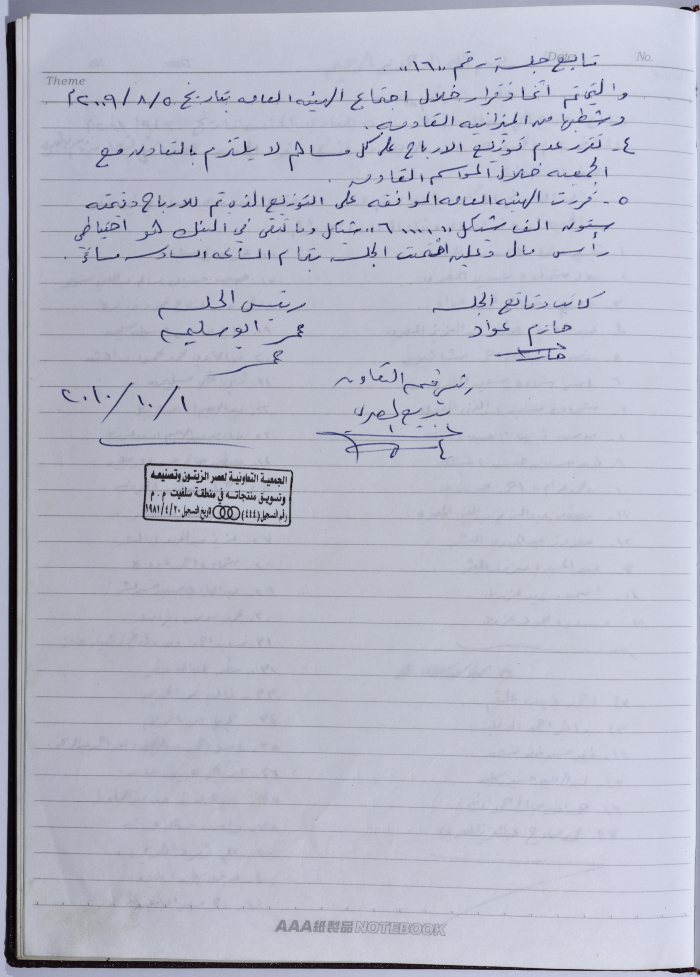 No.
Date
Theme
تابع جلسة رقم "١٦"
والتي تم اتخاذ قرار خلال اجتماع الهيئه العامه بتاريخ ٢٠٠٩/٨/٥م
وشطبها من الميزانيه القادمه .
٤- تقرر عدم توزيع الارباح على كل مساهم لا يلتزم بالتعاون مع
الجمعيه خلال المواسم القادمه .
٥- قررت الهيئه العامه الموافقه على التوزيع الذي تم للارباح وقيمته
ستون الف شيكل "٦٠٠٠٠" شيكل وما تبقى في البنك هو احتياطي
رأس مال وعليه اختتمت الجلسه بتمام الساعه السادسه مساءً .
كاتب وقائع الجلسه
رئيس الجلسه
حازم عواد
عمر ابو سليمه
عمر
رئيس قسم التعاون
بديع المصري
٢٠١٠/١٠/١
الجمعية التعاونية لعصر الزيتون وتصنيعه
وتسويق منتجاته في منطقة سلفيت م . م
رقم التسجيل (٤٤٤) تاريخ التسجيل ١٩٨١/٤/٢٠
AAA紙製品 NOTEBOOK